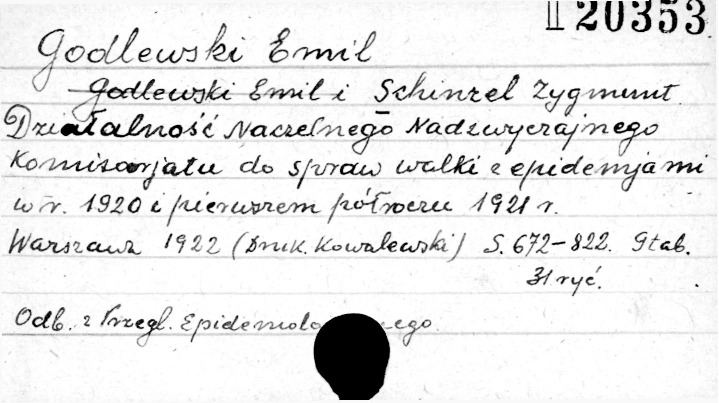 II 20353
Godlewski Emil
Godlewski Emil i Schinzel Zygmunt.
Działalność Naczelnego Nadzwyczajnego
Komisarjatu do spraw walki z epidemjami
w r. 1920 i pierwszem półroczu 1921 r.
Warszawa 1922 (Druk. Kowalewski) S. 672-822. 9 tab.
31 ryć.
Odb. z Przegl. Epidemiolo nego.